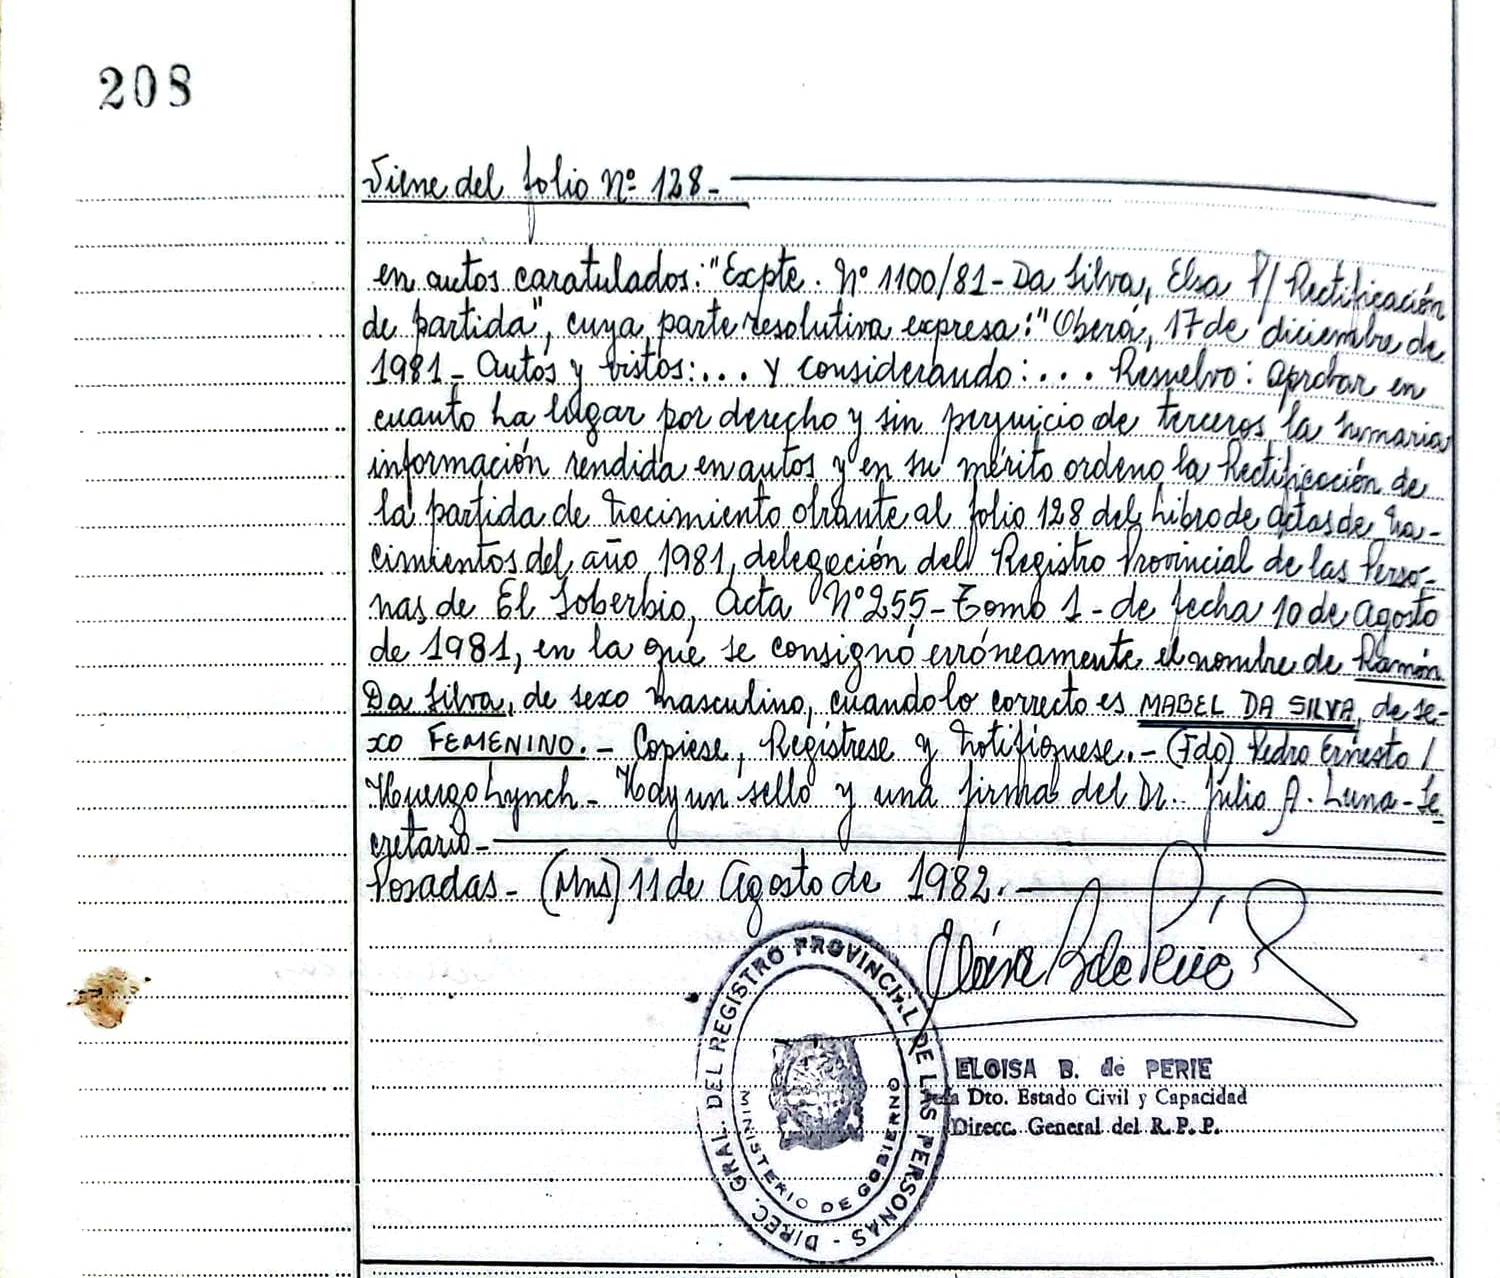 208
Viene del folio Nº 128-
en autos caratulados: "Expte. Nº 1100/81- Da Silva, Elsa S/ Rectificación
de partida", cuya parte resolutiva expresa: "Oberá, 17 de diciembre de
1981- Autos y vistos:... y considerando:... Resuelvo: Aprobar en
cuanto ha lugar por derecho y sin perjuicio de terceros la sumaria
información rendida en autos y en su mérito ordeno la Rectificación de
la partida de nacimiento obrante al folio 128 del Libro de Actas de Na-
cimientos del año 1981, delegación del Registro Provincial de las Perso-
nas de El Soberbio, Acta Nº 255- Tomo 1- de fecha 10 de Agosto
de 1981, en la que se consignó erróneamente el nombre de Ramón
Da Silva, de sexo masculino, cuando lo correcto es MABEL DA SILVA, de se-
xo FEMENINO.- Copiese, Regístrese y Notifíquese.- (Fdo) Pedro Ernesto /
Huergo Lynch- Hay un sello y una firma del Dr. Julio A. Luna- Se
cretario-
Posadas- (Mns) 11 de Agosto de 1982.-
DIREC. GRAL. DEL REGISTRO PROVINCIAL DE LAS PERSONAS -
MINISTERIO DE GOBIERNO
ELOISA B. de PERIE
Jefa Dto. Estado Civil y Capacidad
Direcc. General del R. P. P.